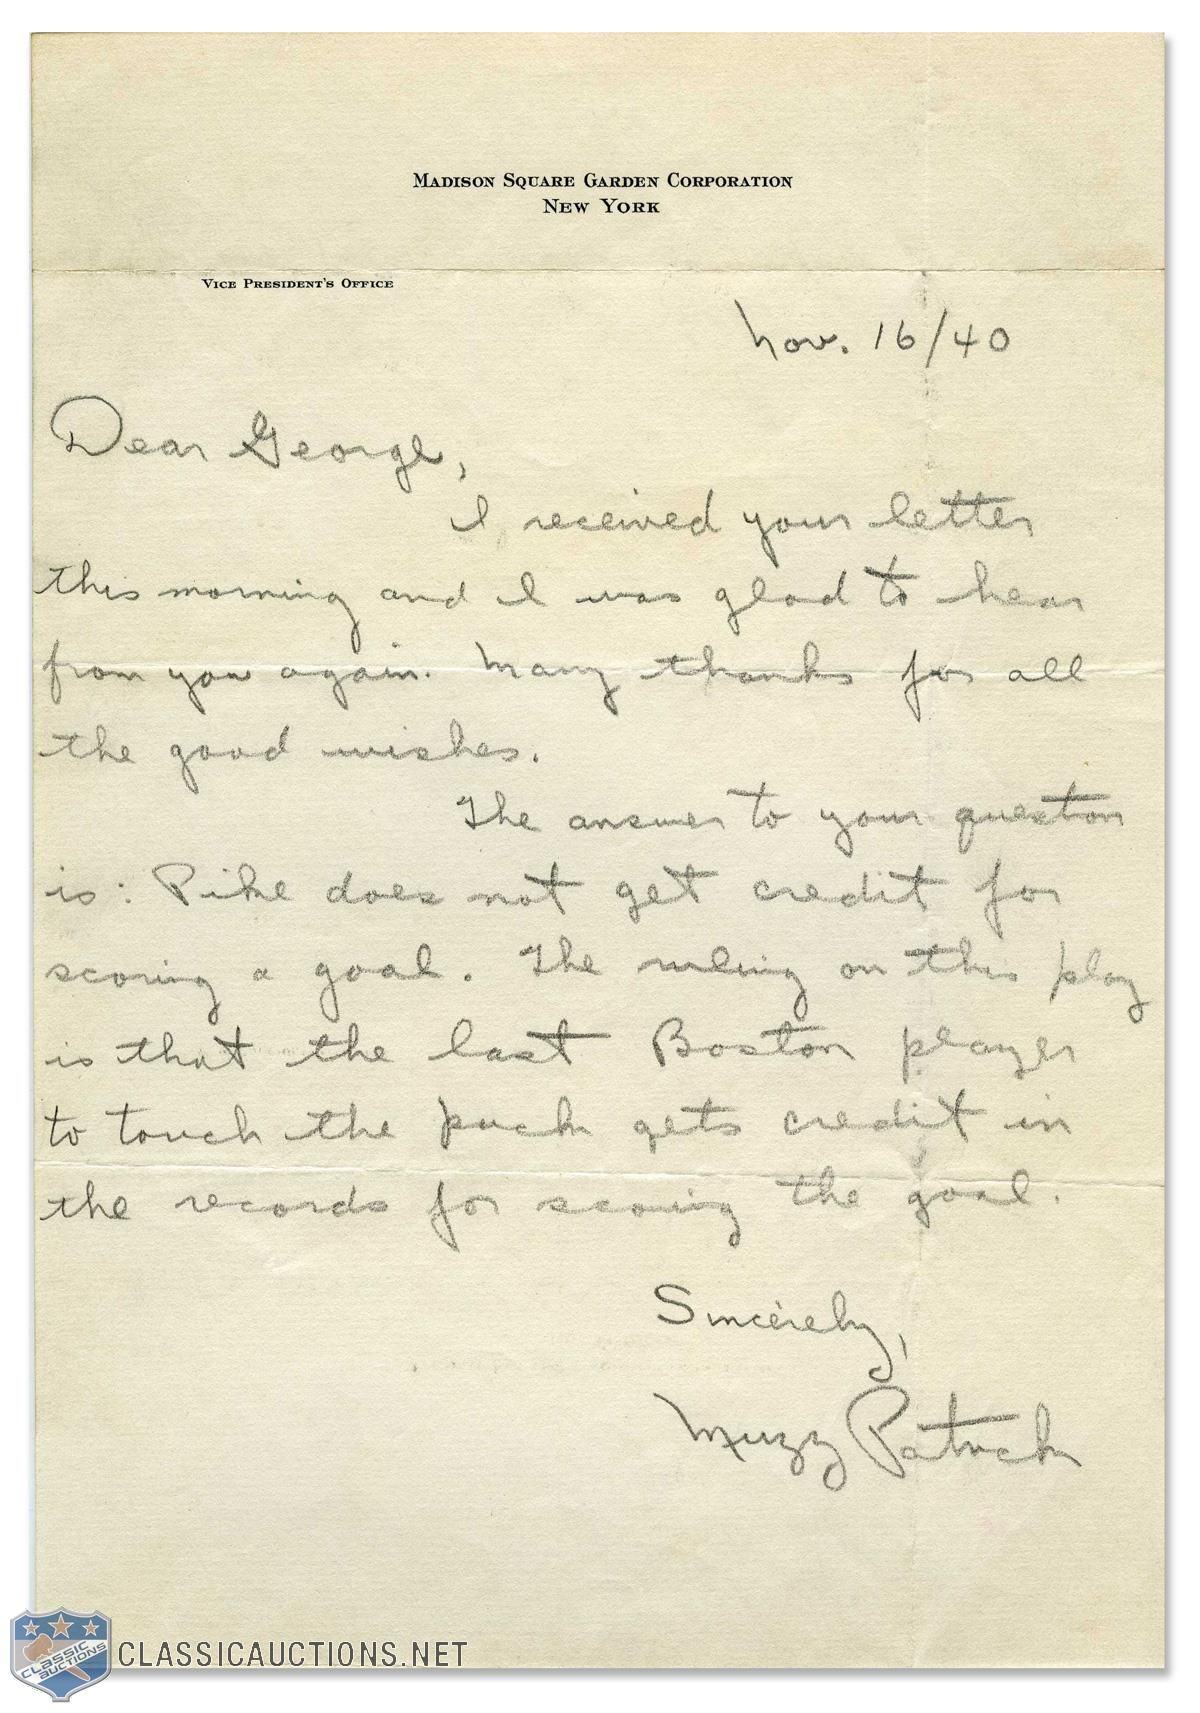 MADISON SQUARE GARDEN CORPORATION
NEW YORK
VICE PRESIDENT'S OFFICE
Nov. 16/40
Dear George,
I received your letter
this morning and I was glad to hear
from you again. Many thanks for all
the good wishes.
The answer to your question
is: Pike does not get credit for
scoring a goal. The ruling on this play
is that the last Boston player
to touch the puck gets credit in
the records for scoring the goal.
Sincerely,
Muzz Patrick
CLASSIC AUCTIONS
CLASSICAUCTIONS.NET